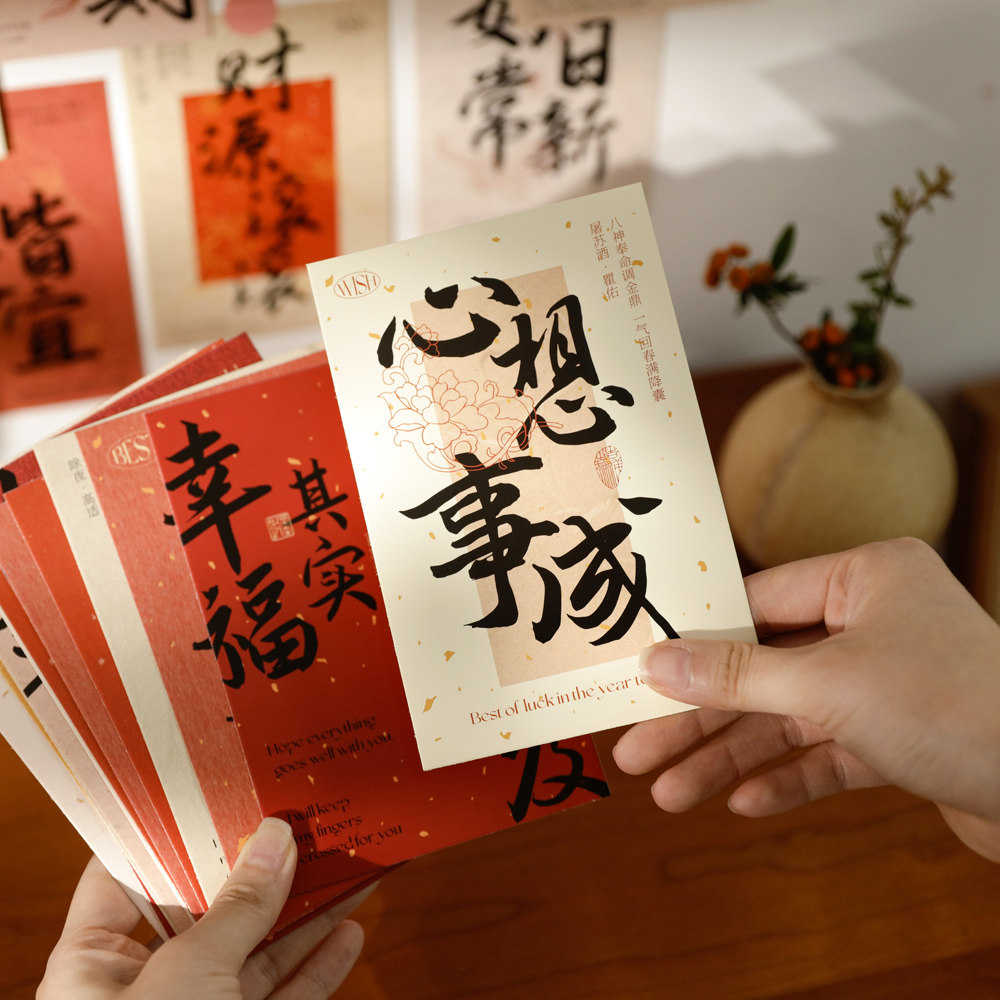 财
源
滚
滚
日
新
常
皆
宜
WISH
八神奉命调金鼎 一气回春满降囊
屠苏酒·瞿佑
心想
事成
Best of luck in the year to
BES
除夜·高适
其实
幸福
Hope everything
goes well with you.
I will keep
my fingers
crossed for you
及